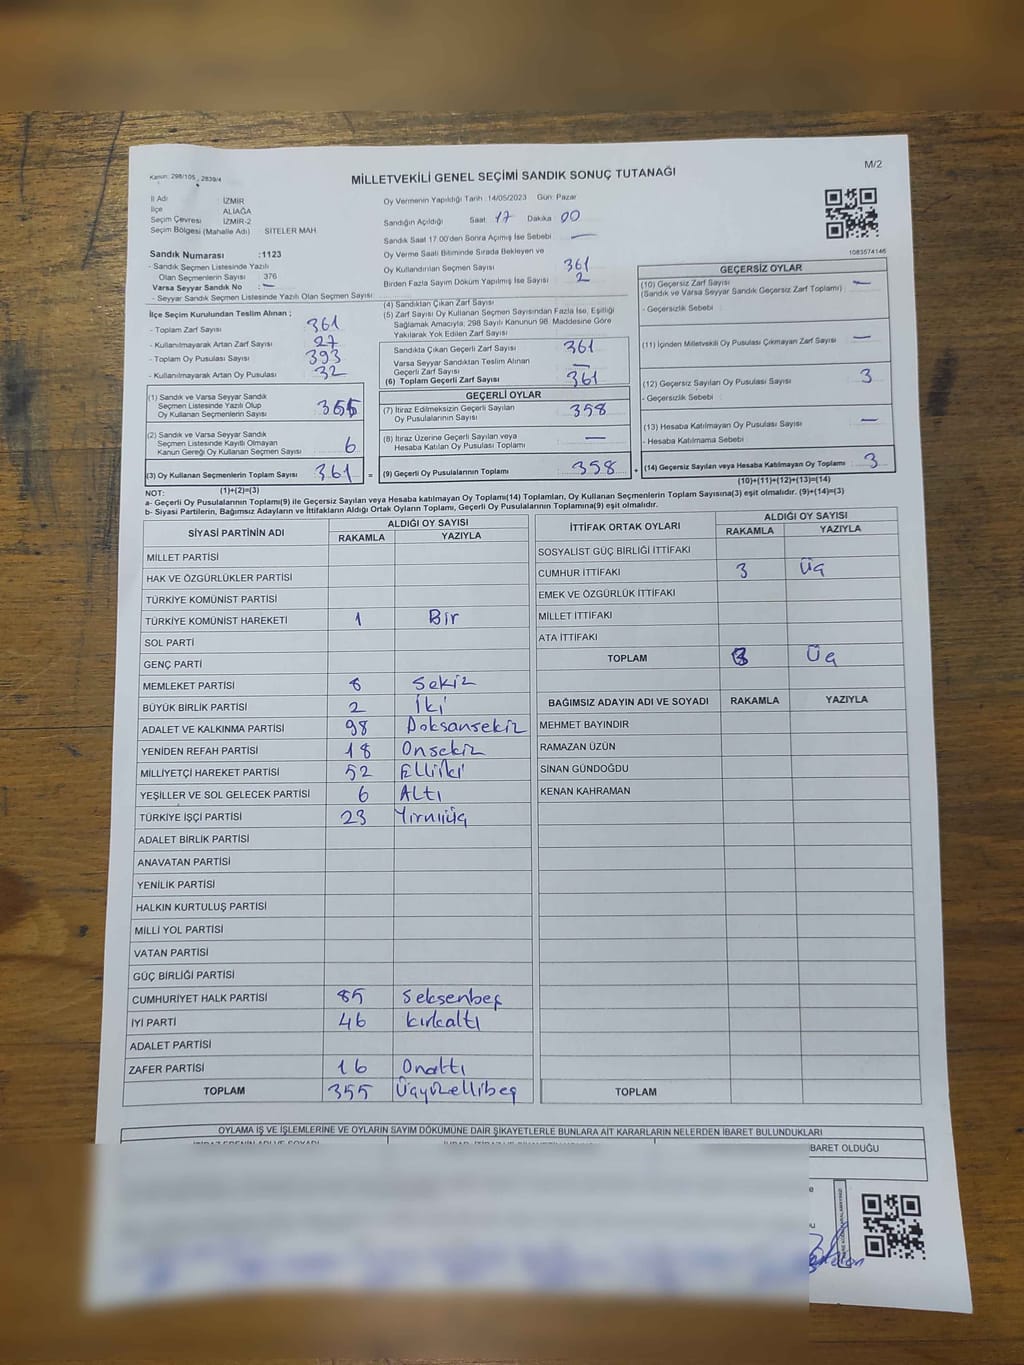 Kanun: 298/105, 2839/4
MİLLETVEKİLİ GENEL SEÇİMİ SANDIK SONUÇ TUTANAĞI
M/2
İl Adı İZMİR
İlçe ALİAĞA
Seçim Çevresi İZMİR-2
Seçim Bölgesi (Mahalle Adı) SİTELER MAH
Sandık Numarası :1123
- Sandık Seçmen Listesinde Yazılı
Olan Seçmenlerin Sayısı 376
Varsa Seyyar Sandık No : —
- Seyyar Sandık Seçmen Listesinde Yazılı Olan Seçmen Sayısı
İlçe Seçim Kurulundan Teslim Alınan ;
- Toplam Zarf Sayısı 361
- Kullanılmayarak Artan Zarf Sayısı 27
- Toplam Oy Pusulası Sayısı 393
- Kullanılmayarak Artan Oy Pusulası 32
(1) Sandık ve Varsa Seyyar Sandık
Seçmen Listesinde Yazılı Olup
Oy Kullanan Seçmenlerin Sayısı 355
(2) Sandık ve Varsa Seyyar Sandık
Seçmen Listesinde Kayıtlı Olmayan
Kanun Gereği Oy Kullanan Seçmen Sayısı 6
(3) Oy Kullanan Seçmenlerin Toplam Sayısı 361 =
(1)+(2)=(3)
Oy Vermenin Yapıldığı Tarih : 14/05/2023 Gün: Pazar
Sandığın Açıldığı Saat: 17 Dakika: 00
Sandık Saat 17:00'den Sonra Açımış İse Sebebi —
Oy Verme Saati Bitiminde Sırada Bekleyen ve
Oy Kullandırılan Seçmen Sayısı 361
Birden Fazla Sayım Döküm Yapılmış İse Sayısı 2
(4) Sandıktan Çıkan Zarf Sayısı
(5) Zarf Sayısı Oy Kullanan Seçmen Sayısından Fazla İse, Eşitliği
Sağlamak Amacıyla, 298 Sayılı Kanunun 98. Maddesine Göre
Yakılarak Yok Edilen Zarf Sayısı
Sandıkta Çıkan Geçerli Zarf Sayısı 361
Varsa Seyyar Sandıktan Teslim Alınan
Geçerli Zarf Sayısı —
(6) Toplam Geçerli Zarf Sayısı 361
GEÇERLİ OYLAR
(7) İtiraz Edilmeksizin Geçerli Sayılan
Oy Pusulalarının Sayısı 358
(8) İtiraz Üzerine Geçerli Sayılan veya
Hesaba Katılan Oy Pusulası Toplamı —
(9) Geçerli Oy Pusulalarının Toplamı 358 +
1083574146
GEÇERSİZ OYLAR
(10) Geçersiz Zarf Sayısı —
(Sandık ve Varsa Seyyar Sandık Geçersiz Zarf Toplamı)
- Geçersizlik Sebebi :
(11) İçinden Milletvekili Oy Pusulası Çıkmayan Zarf Sayısı —
(12) Geçersiz Sayılan Oy Pusulası Sayısı 3
- Geçersizlik Sebebi :
(13) Hesaba Katılmayan Oy Pusulası Sayısı —
- Hesaba Katılmama Sebebi
(14) Geçersiz Sayılan veya Hesaba Katılmayan Oy Toplamı 3
(10)+(11)+(12)+(13)=(14)
NOT:
a- Geçerli Oy Pusulalarının Toplamı(9) ile Geçersiz Sayılan veya Hesaba katılmayan Oy Toplamı(14) Toplamları, Oy Kullanan Seçmenlerin Toplam Sayısına(3) eşit olmalıdır. (9)+(14)=(3)
b- Siyasi Partilerin, Bağımsız Adayların ve İttifakların Aldığı Ortak Oyların Toplamı, Geçerli Oy Pusulalarının Toplamına(9) eşit olmalıdır.
SİYASİ PARTİNİN ADI ALDIĞI OY SAYISI
RAKAMLA YAZIYLA
MİLLET PARTİSİ
HAK VE ÖZGÜRLÜKLER PARTİSİ
TÜRKİYE KOMÜNİST PARTİSİ
TÜRKİYE KOMÜNİST HAREKETİ 1 Bir
SOL PARTİ
GENÇ PARTİ
MEMLEKET PARTİSİ 8 Sekiz
BÜYÜK BİRLİK PARTİSİ 2 İki
ADALET VE KALKINMA PARTİSİ 98 Doksansekiz
YENİDEN REFAH PARTİSİ 18 Onsekiz
MİLLİYETÇİ HAREKET PARTİSİ 52 Elliiki
YEŞİLLER VE SOL GELECEK PARTİSİ 6 Altı
TÜRKİYE İŞÇİ PARTİSİ 23 Yirmiüç
ADALET BİRLİK PARTİSİ
ANAVATAN PARTİSİ
YENİLİK PARTİSİ
HALKIN KURTULUŞ PARTİSİ
MİLLİ YOL PARTİSİ
VATAN PARTİSİ
GÜÇ BİRLİĞİ PARTİSİ
CUMHURİYET HALK PARTİSİ 85 Seksenbeş
İYİ PARTİ 46 Kırkaltı
ADALET PARTİSİ
ZAFER PARTİSİ 16 Onaltı
TOPLAM 355 Üçyüzellibeş
İTTİFAK ORTAK OYLARI ALDIĞI OY SAYISI
RAKAMLA YAZIYLA
SOSYALİST GÜÇ BİRLİĞİ İTTİFAKI
CUMHUR İTTİFAKI 3 Üç
EMEK VE ÖZGÜRLÜK İTTİFAKI
MİLLET İTTİFAKI
ATA İTTİFAKI
TOPLAM 3 Üç
BAĞIMSIZ ADAYIN ADI VE SOYADI RAKAMLA YAZIYLA
MEHMET BAYINDIR
RAMAZAN ÜZÜN
SİNAN GÜNDOĞDU
KENAN KAHRAMAN
TOPLAM
OYLAMA İŞ VE İŞLEMLERİNE VE OYLARIN SAYIM DÖKÜMÜNE DAİR ŞİKAYETLERLE BUNLARA AİT KARARLARIN NELERDEN İBARET BULUNDUKLARI
BARET OLDUĞU